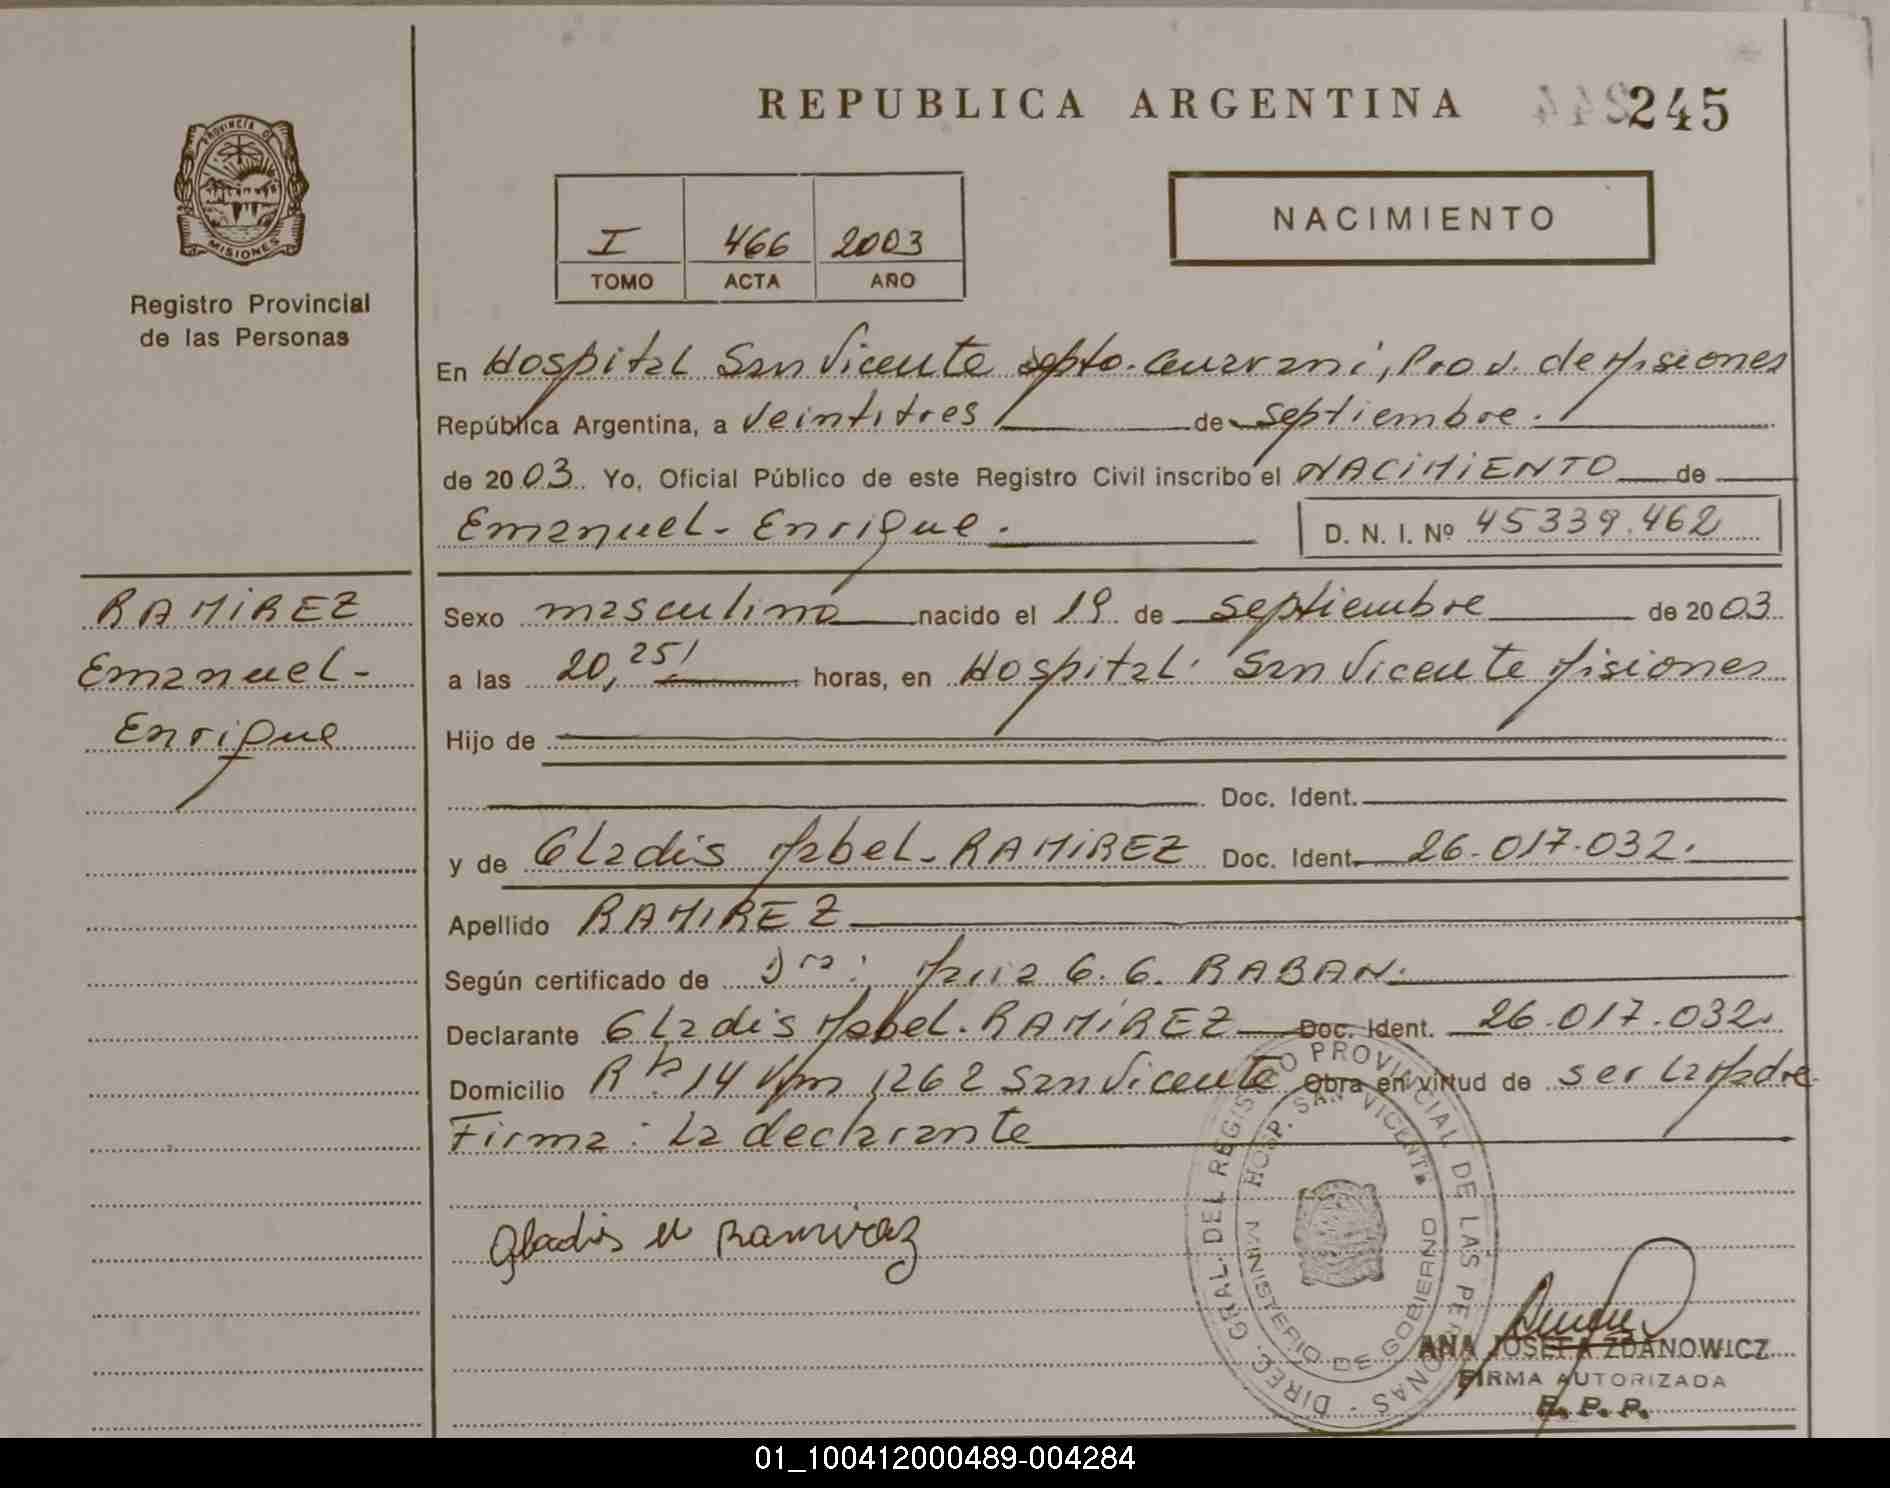 REPUBLICA ARGENTINA 245
PROVINCIA DE
MISIONES
Registro Provincial
de las Personas
I 466 2003
TOMO ACTA AÑO
NACIMIENTO
En Hospital San Vicente Dpto. Guarani, Prov. de Misiones
República Argentina, a veintitres de septiembre.
de 2003. Yo, Oficial Público de este Registro Civil inscribo el NACIMIENTO de
Emanuel - Enrique. D. N. I. Nº 45339.462
RAMIREZ
Emanuel -
Enrique
Sexo masculino nacido el 19 de septiembre de 2003
a las 20,25 horas, en Hospital San Vicente Misiones
Hijo de
Doc. Ident.
y de Gladis Mabel - RAMIREZ Doc. Ident. 26.017.032.
Apellido RAMIREZ
Según certificado de Dra: G. G. RABAN.
Declarante Gladis Mabel. RAMIREZ Doc. Ident. 26.017.032.
Domicilio 14 Km 1262 San Vicente Obra en virtud de ser la Madre
Firma: La declarante
Gladis M Ramirez
DIREC. GRAL. DEL REGISTRO PROVINCIAL DE LAS PERSONAS -
HOSP. SAN VICENTE
MINISTERIO DE GOBIERNO
ANA JOSEFA ZDANOWICZ
FIRMA AUTORIZADA
R. P. P.
01_100412000489-004284